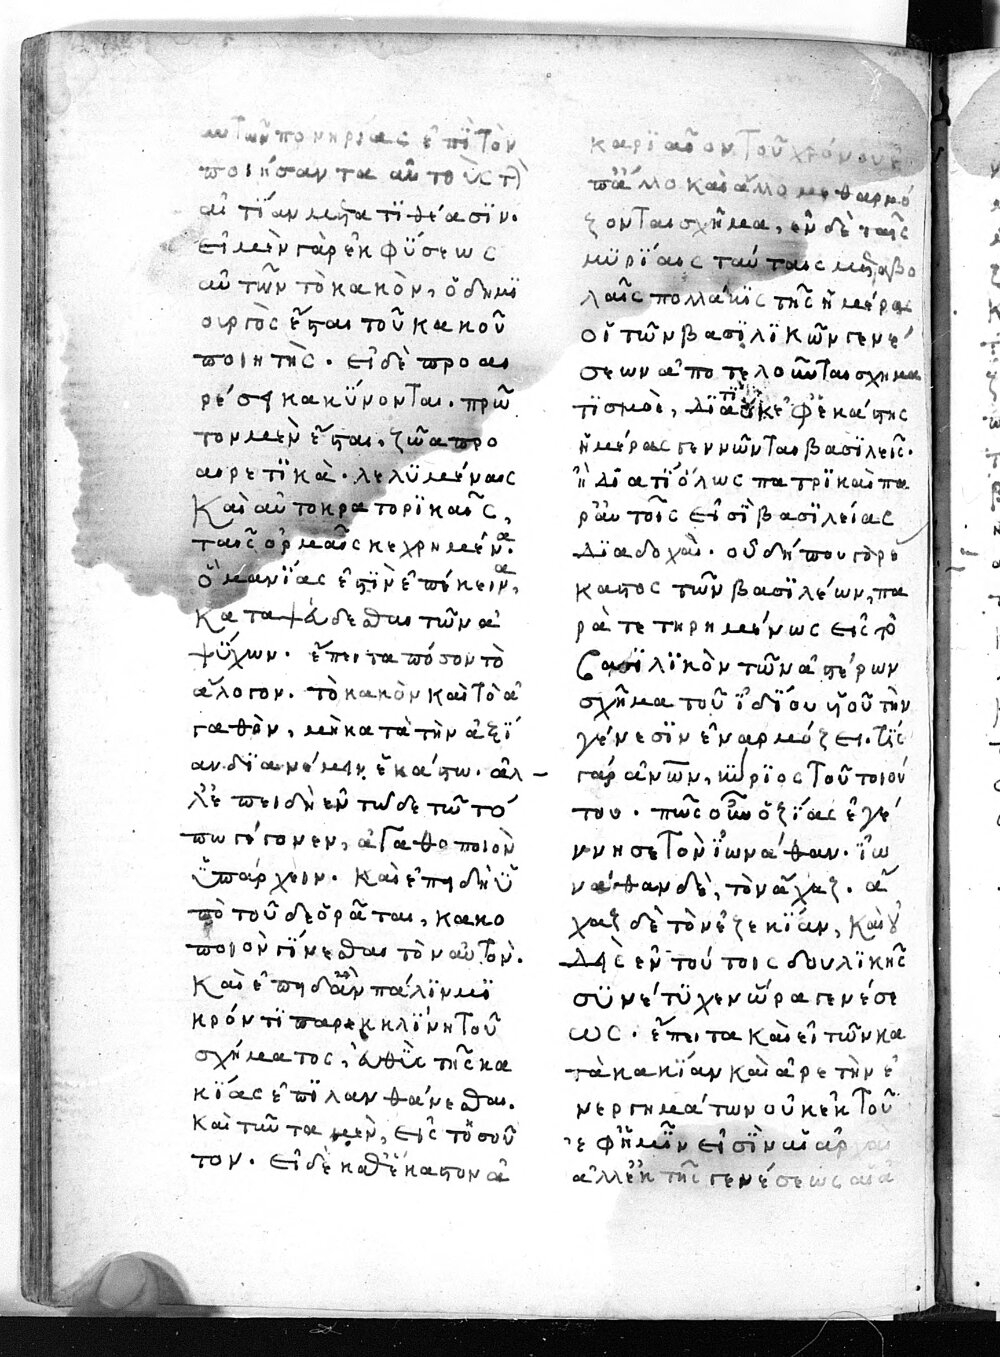 αυτῶν πονηρίας ἐπὶ τὸν
ποιήσαντα αὐτοὺς τὴ
αἰτίαν μετατιθέασϊν·
εἰ μὲν γὰρ ἐκ φΰσεως
αὐτῶν τὸ κακὸν, ὁ δημϊ
ουργὸς ἔσται τοῦ κακοῦ
ποιητὴς· εἰ δὲ προαι
ρέσει κακΰνονται· πρῶ
τον μὲν ἔσται, ζῶα προ
αιρετϊκὰ· λελϋμέναις
Καὶ αὐτοκρατορϊκαῖς,
ταῖς ὁρμαῖς κεχρημένα·
ὃ μανΐας ἐστὶν ἐπέκεινα,
Καταψεύδεσθαι τῶν ἀ
ψΰχων· ἔπειτα πόσον τὸ
ἄλογον· τὸ κακὸν καὶ τὸ ἀ
γαθὸν, μὴ κατὰ τὴν ἀξΐ
αν διανέμειν ἑκάστω· ἀλ
λ' ἐπειδὴ ἐν τῶδε τῶ τό
πω γέγονεν, ἀγαθοποιὸν
ϋπάρχειν· Καὶ ἐπειδὴ ϋ
πὸ τοῦδε ὁρᾶται, κακο
ποιὸν γΐνεσθαι τὸν αὐτὸν·
Καὶ ἐπειδὰν πάλϊν μϊ
κρόν τϊ παρεκκλϊνη τοῦ
σχήματος, εὐθϋς τῆς κα
κΐας ἐπϊλανθάνεσθαι·
Καὶ ταῦτα μὲν, εἰς τοσοῦ
τον· Εἰ δὲ καθ' ἕκαστον ἀ
καρϊαῖον τοῦ χρόνου ἐ
π' ἄλλο καὶ ἄλλο μεθαρμό
ζονται σχῆμα, ἐν δὲ ταῖς
μϋρΐαις ταύταις μεταβο
λαῖς πολλάκις τῆς ἡμέρας
οἱ τῶν βασϊλϊκῶν γενέ
σεων ἀποτελοῦνται σχημα
τϊσμοὶ, διατί οὐκ ἐφ' ἑκάστης
ἡμέρας γεννῶνται βασϊλεῖς·
ἢ διατί ὅλως πατρϊκαὶ πα
ρ' αὐτοῖς εἰσϊ βασϊλείας
διαδοχαὶ· οὐ δήπου γὰρ ἕ
καστος τῶν βασϊλέων, πα
ρατετηρημένως εἰς τὸ
βασϊλϊκὸν τῶν ἀστέρων
σχῆμα τοῦ ϊδΐου υἱοῦ τὴν
γένεσϊν ἐναρμόζει· τίς
γὰρ ἀνων, κΰριος τοῦ τοιού
του· πῶς οὖν ὀζΐας ἐγέ
ννησε τὸν ϊωνάθαν· ϊω
νάθαν δὲ, τὸν ἄχαζ· ἄ
χαζ δὲ τὸν ἐζεκΐαν, Καὶ οὐ
δεὶς ἐν τούτοις δουλϊκῆς
σϋνέτϋχεν ὥρα γενέσε
ως· ἔπειτα καὶ εἰ τῶν κα
τὰ κακΐαν καὶ ἀρετὴν ἐ
νεργημάτων οὐκ ἐκ τοῦ
ἐφ' ἡμῖν εἰσϊν αἱ ἀρχαὶ
ἀλλ' ἐκ τῆς γενέσεως αἱ ἀ